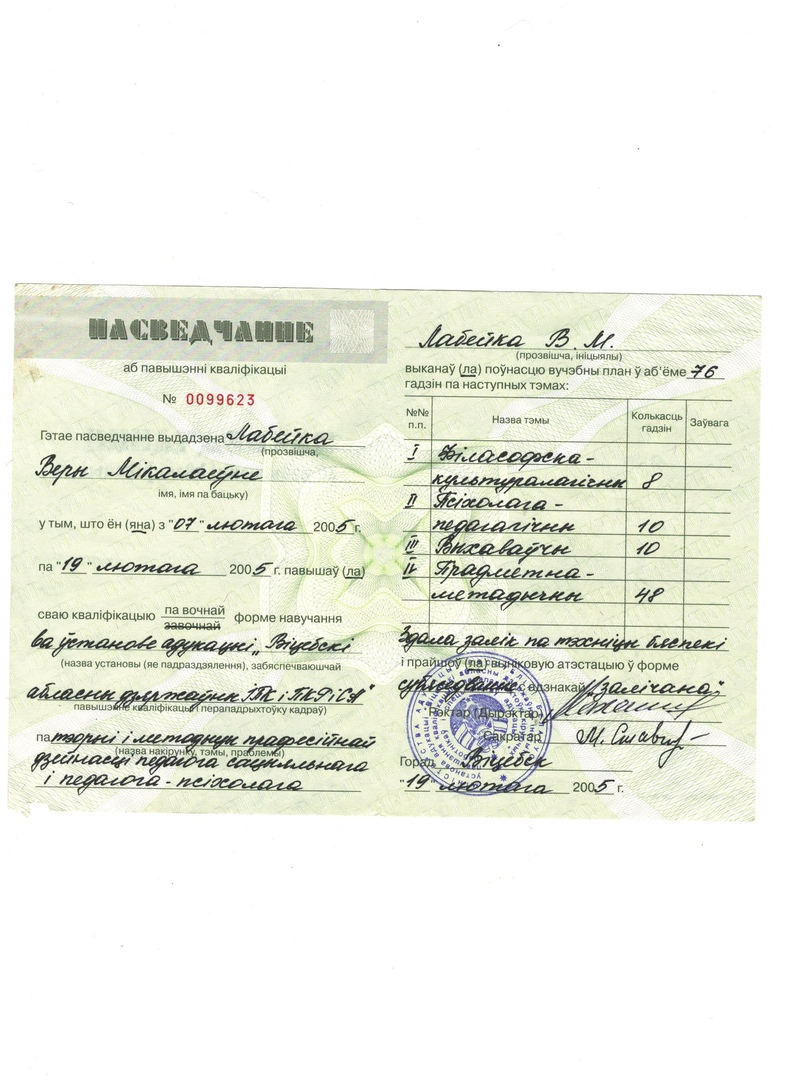 ПАСВЕДЧАННЕ
аб павышэнні кваліфікацыі
№ 0099623
Гэтае пасведчанне выдадзена Лабейка
(прозвішча,
Веры Мікалаеўне
імя, імя па бацьку)
у тым, што ён (яна) з "07" лютага 2005 г.
па "19" лютага 2005 г. павышаў (ла)
сваю кваліфікацыю па вочнай завочнай форме навучання
ва ўстанове адукацыі „Віцебскі
(назва установы (яе падраздзялення), забяспечваючай
абласны дзяржаўны ІПК і ПКРіСА"
павышэнне кваліфікацыі і перападрыхтоўку кадраў)
па тэорыі і методыцы прафесійнай
(назва накірунку, тэмы, праблемы)
дзейнасці педагога сацыяльнага
і педагога-псіхолага
Лабейка В. М.
(прозвішча, ініцыялы)
выканаў (ла) поўнасцю вучэбны план ў аб'ёме 76
гадзін па наступных тэмах:
№№ п.п. Назва тэмы Колькасць гадзін Заўвага
I Філасофска-
культуралагічны 8
II Псіхолага-
педагагічны 10
III Выхаваўчы 10
IV Прадметна-
метадычны 48
Здала залік па тэхніцы бяспекі
і прайшоў (ла) выніковую атэстацыю ў форме
субяседвання с адзнакай „залічана"
Рэктар (Дырэктар)
Сакратар
Горад Віцебск
"19" лютага 2005 г.